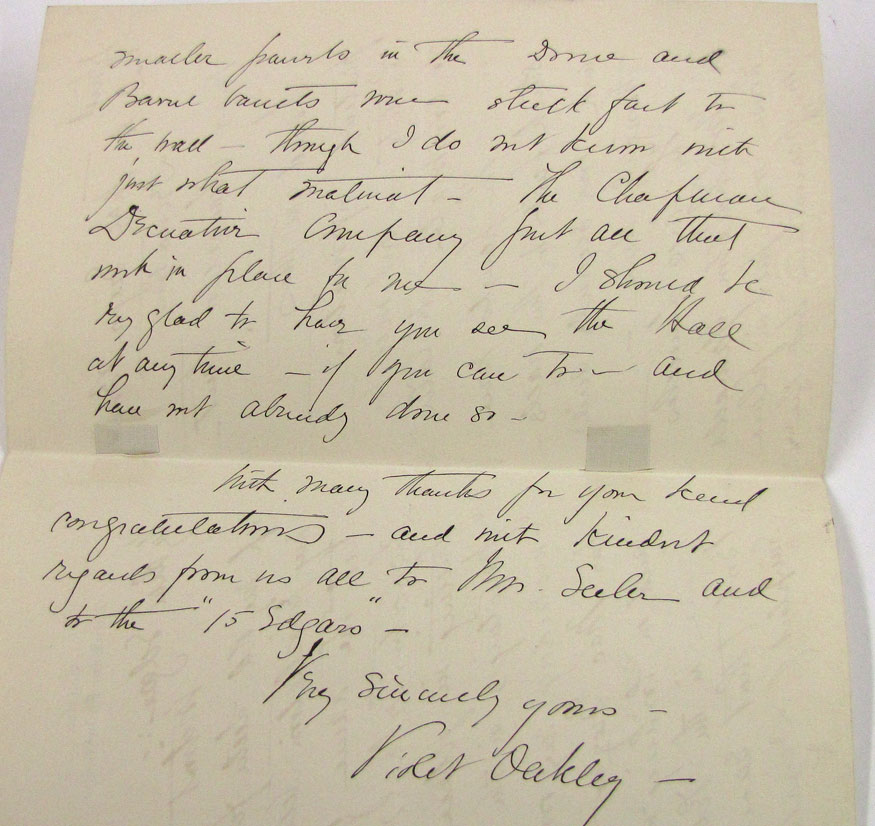 smaller panels in the Dome and
Barrel vaults were stuck fast to
the wall – though I do not know with
just what material – The Chapman
Decorative Company put all that
work in place for me – – I should be
very glad to have you see the Hall
at any time – if you can to – and
have not already done so –
With many thanks for your kind
congratulations – and with kindest
regards from us all to Mrs. Seeler and
to the "15 Edgars" –
Very Sincerely yours –
Violet Oakley –